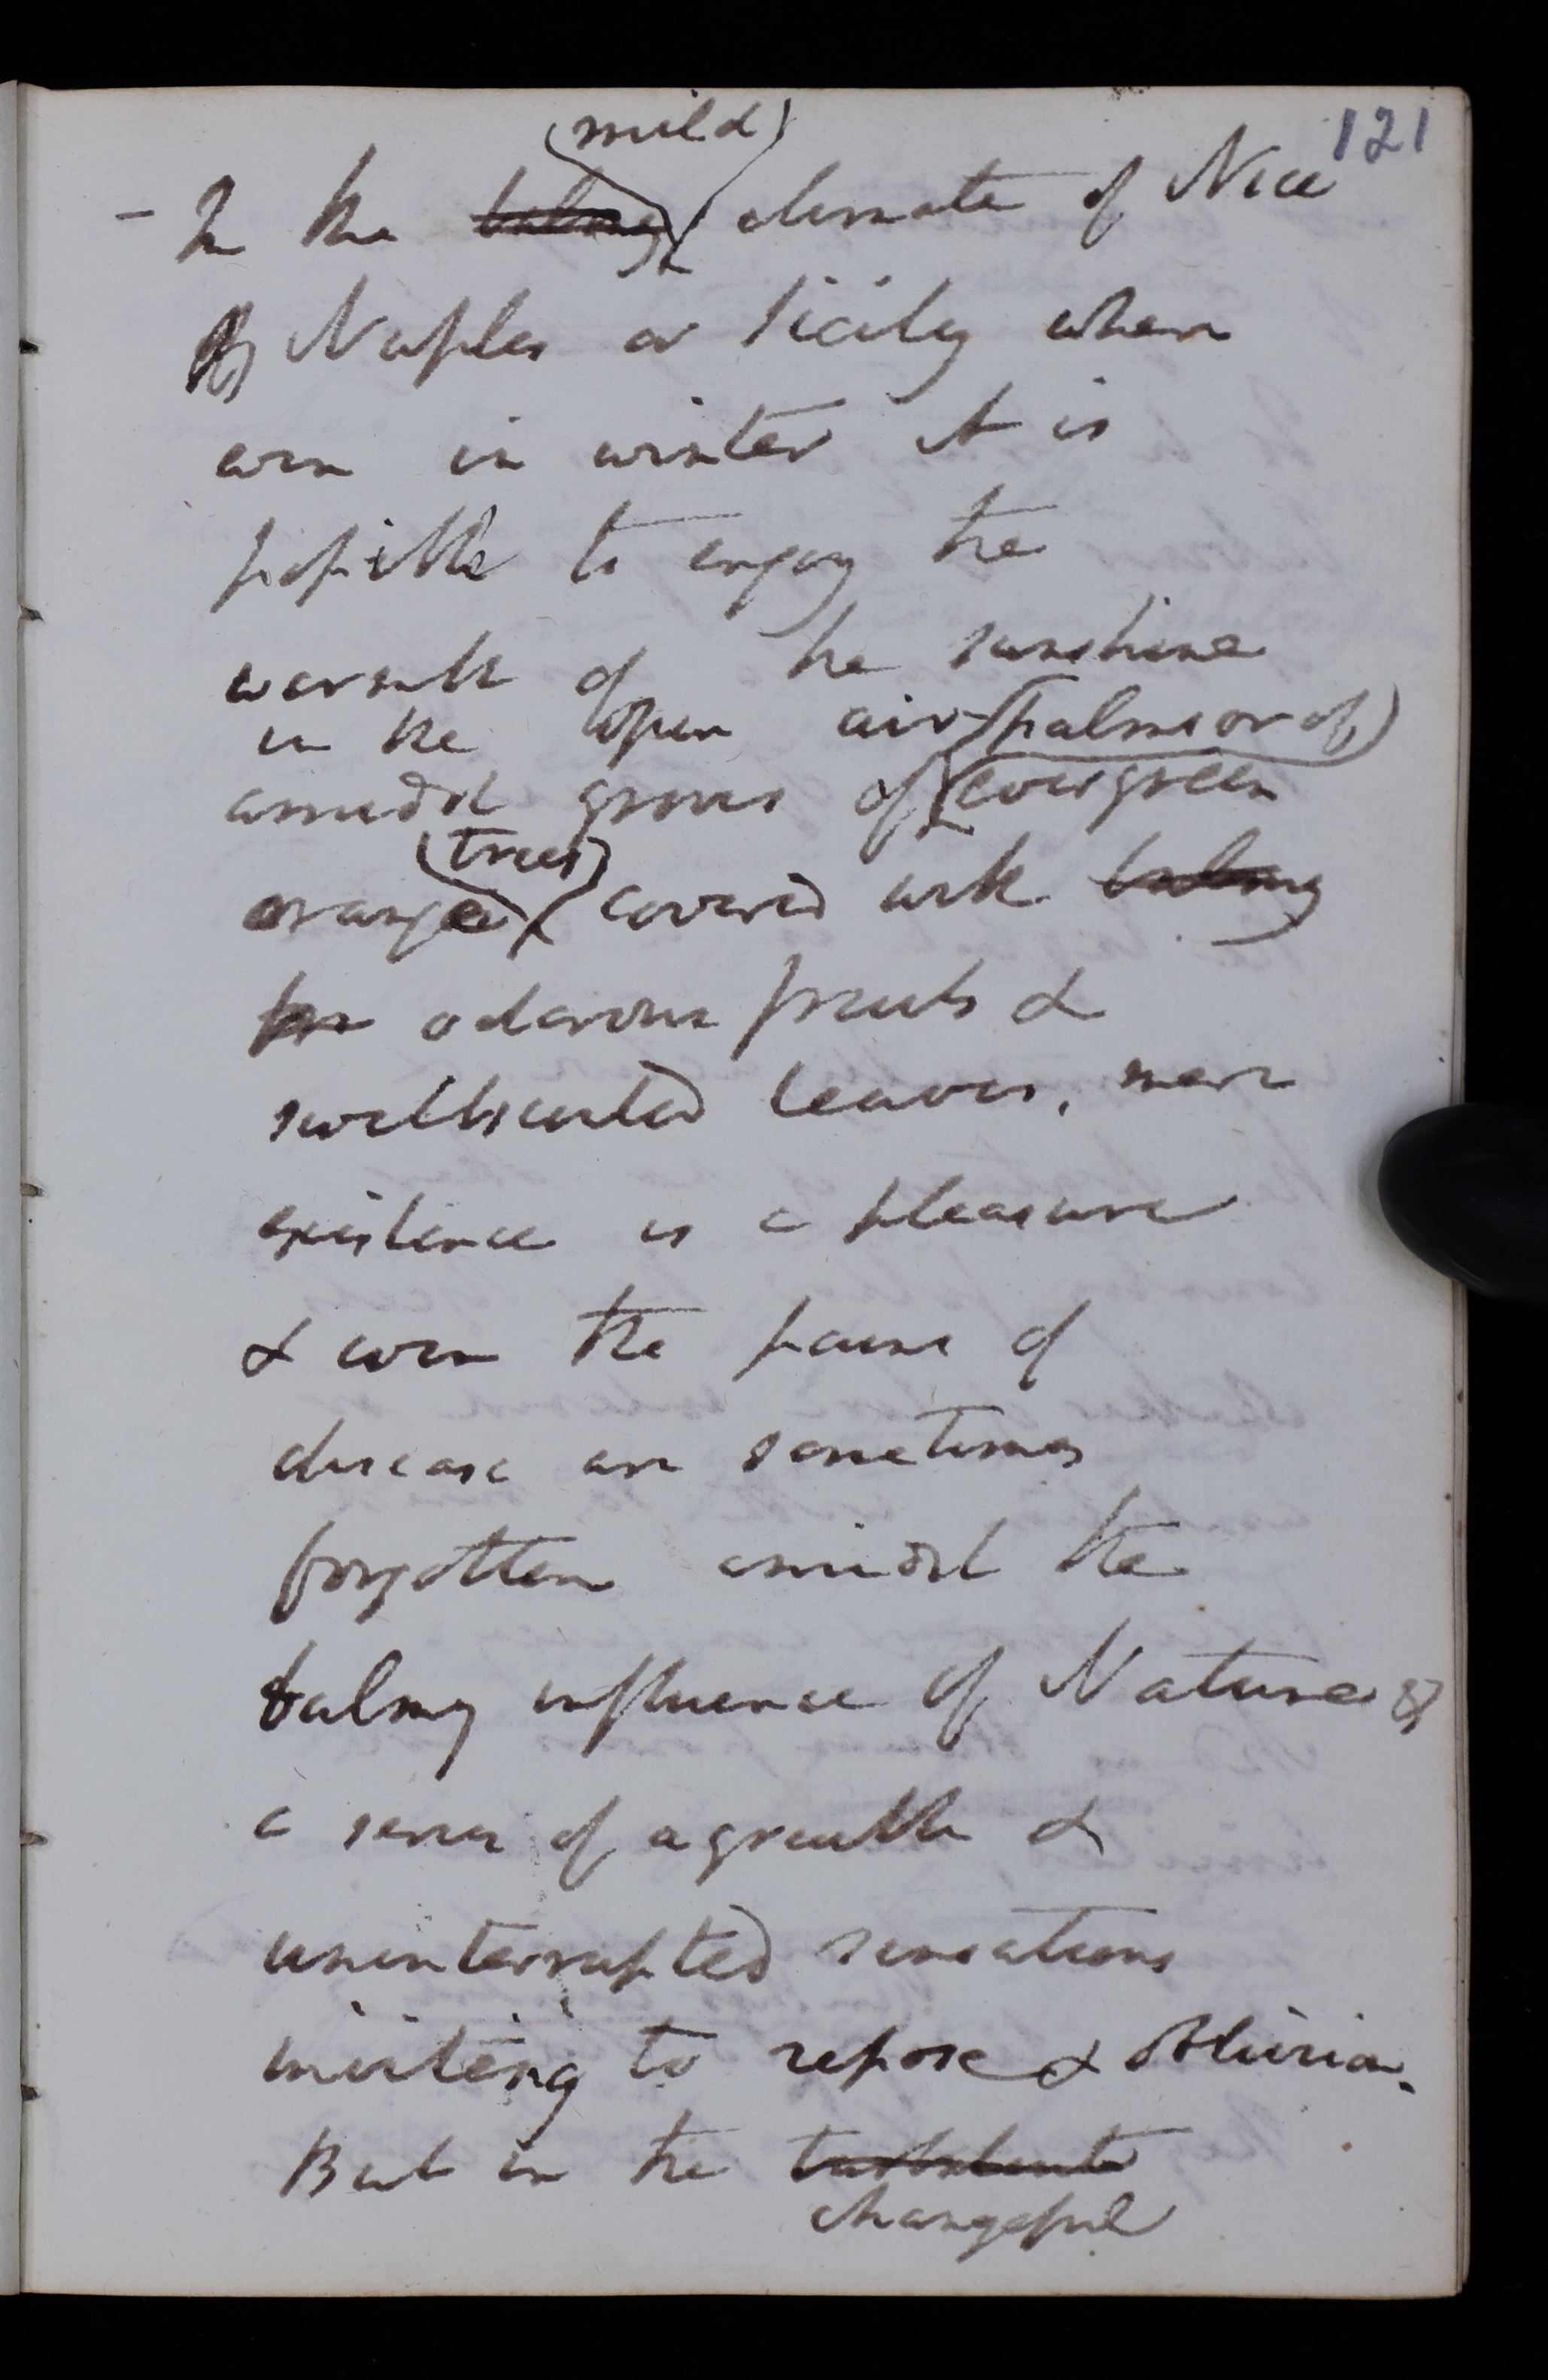 121
(mild)
- In the balmy climate of Nice
of Naples or Sicily where
even in winter it is
possible to enjoy the
warmth of the sunshine
in the open air (palms or of)
amidst groves of evergreen
(trees)
orange covered with balmy
odorous fruits &
sweetscented leaves, mere
existence is a pleasure
& even the pains of
disease are sometimes
forgotten amidst the
balmy influence of Nature &
a series of agreeable &
uninterrupted sensations
inviting to repose & oblivion.
But in the turbulent
changeful